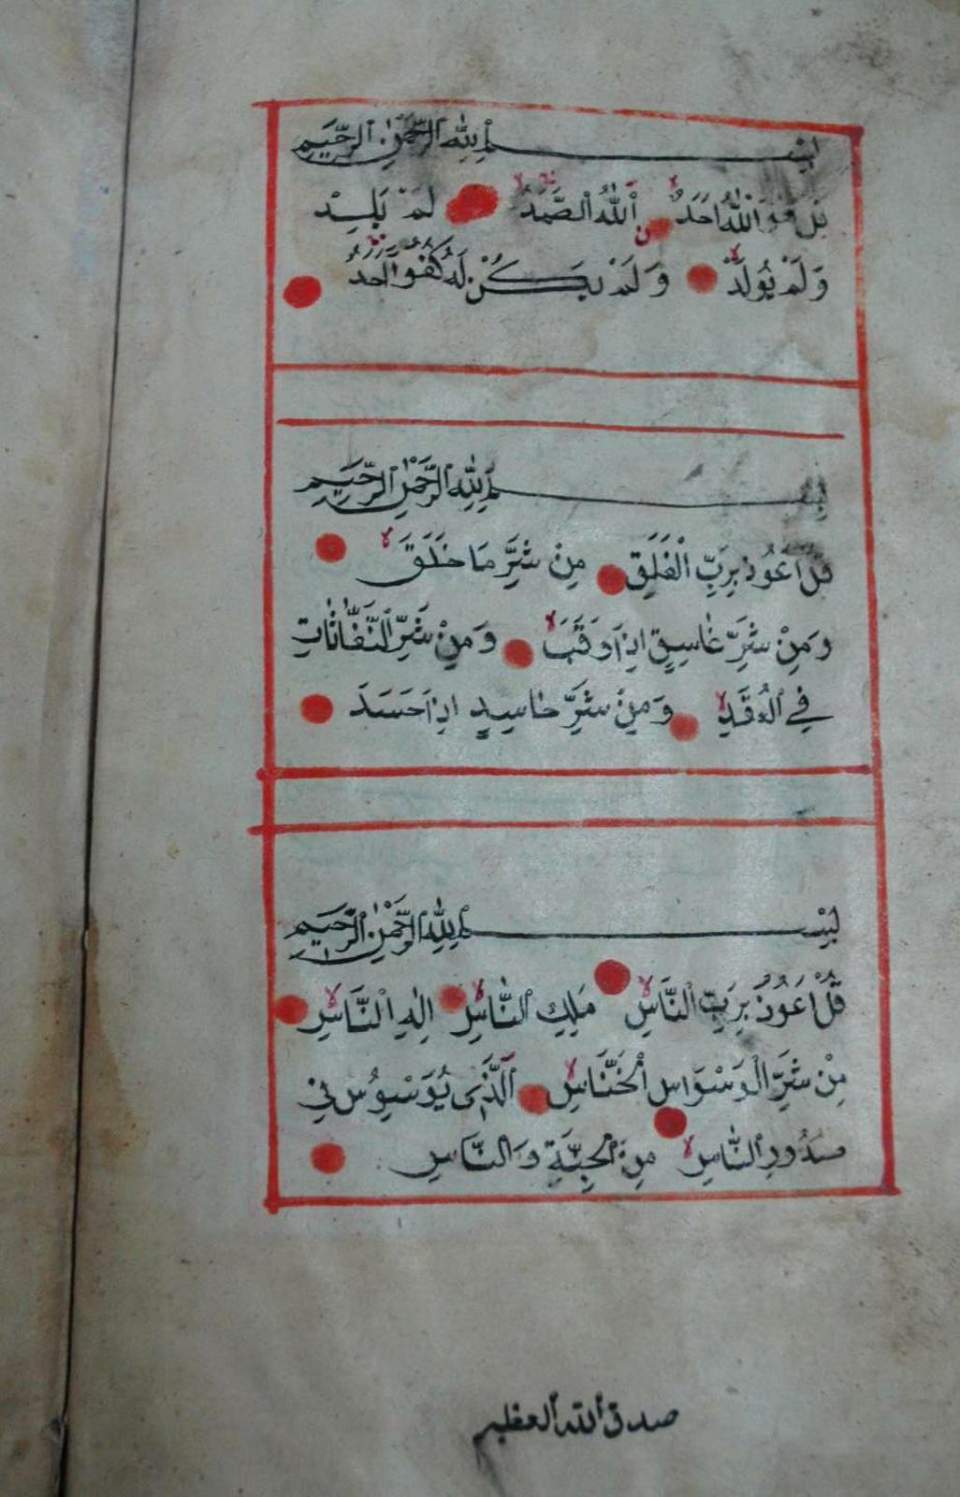 بِسْمِ اللّٰهِ الرَّحْمٰنِ الرَّحِيمِ
قُلْ هُوَ اللّٰهُ اَحَدٌ اَللّٰهُ الصَّمَدُ لَمْ يَلِدْ
وَلَمْ يُولَدْ وَلَمْ يَكُنْ لَهُ كُفُوًا اَحَدٌ
بِسْمِ اللّٰهِ الرَّحْمٰنِ الرَّحِيمِ
قُلْ اَعُوذُ بِرَبِّ الْفَلَقِ مِنْ شَرِّ مَا خَلَقَ
وَمِنْ شَرِّ غَاسِقٍ اِذَا وَقَبَ وَمِنْ شَرِّ النَّفَّاثَاتِ
فِي الْعُقَدِ وَمِنْ شَرِّ حَاسِدٍ اِذَا حَسَدَ
بِسْمِ اللّٰهِ الرَّحْمٰنِ الرَّحِيمِ
قُلْ اَعُوذُ بِرَبِّ النَّاسِ مَلِكِ النَّاسِ اِلٰهِ النَّاسِ
مِنْ شَرِّ الْوَسْوَاسِ الْخَنَّاسِ اَلَّذِي يُوَسْوِسُ فِي
صُدُورِ النَّاسِ مِنَ الْجِنَّةِ وَالنَّاسِ
صدق الله العظيم